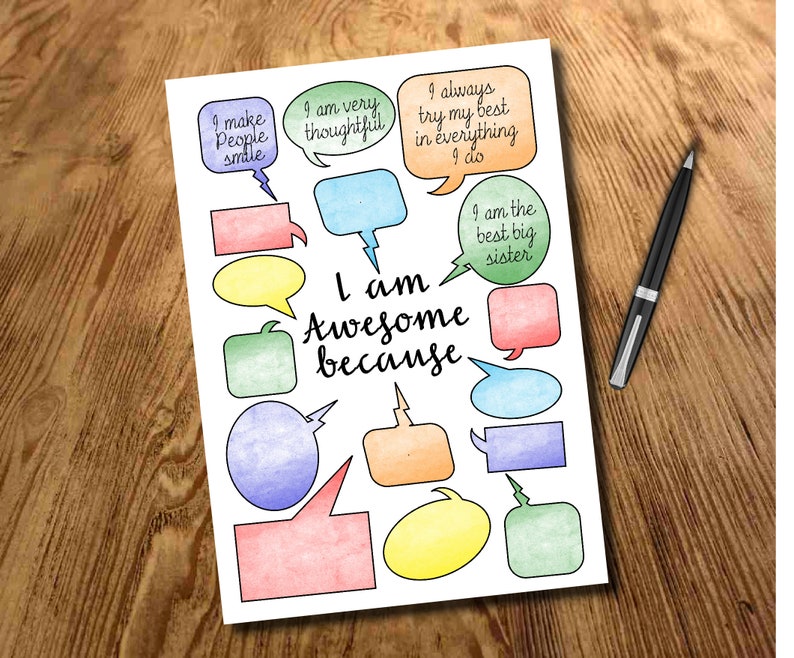 I make
People
smile
I am very
thoughtful
I always
try my best
in everything
I do
I am the
best big
sister
I am
Awesome
because